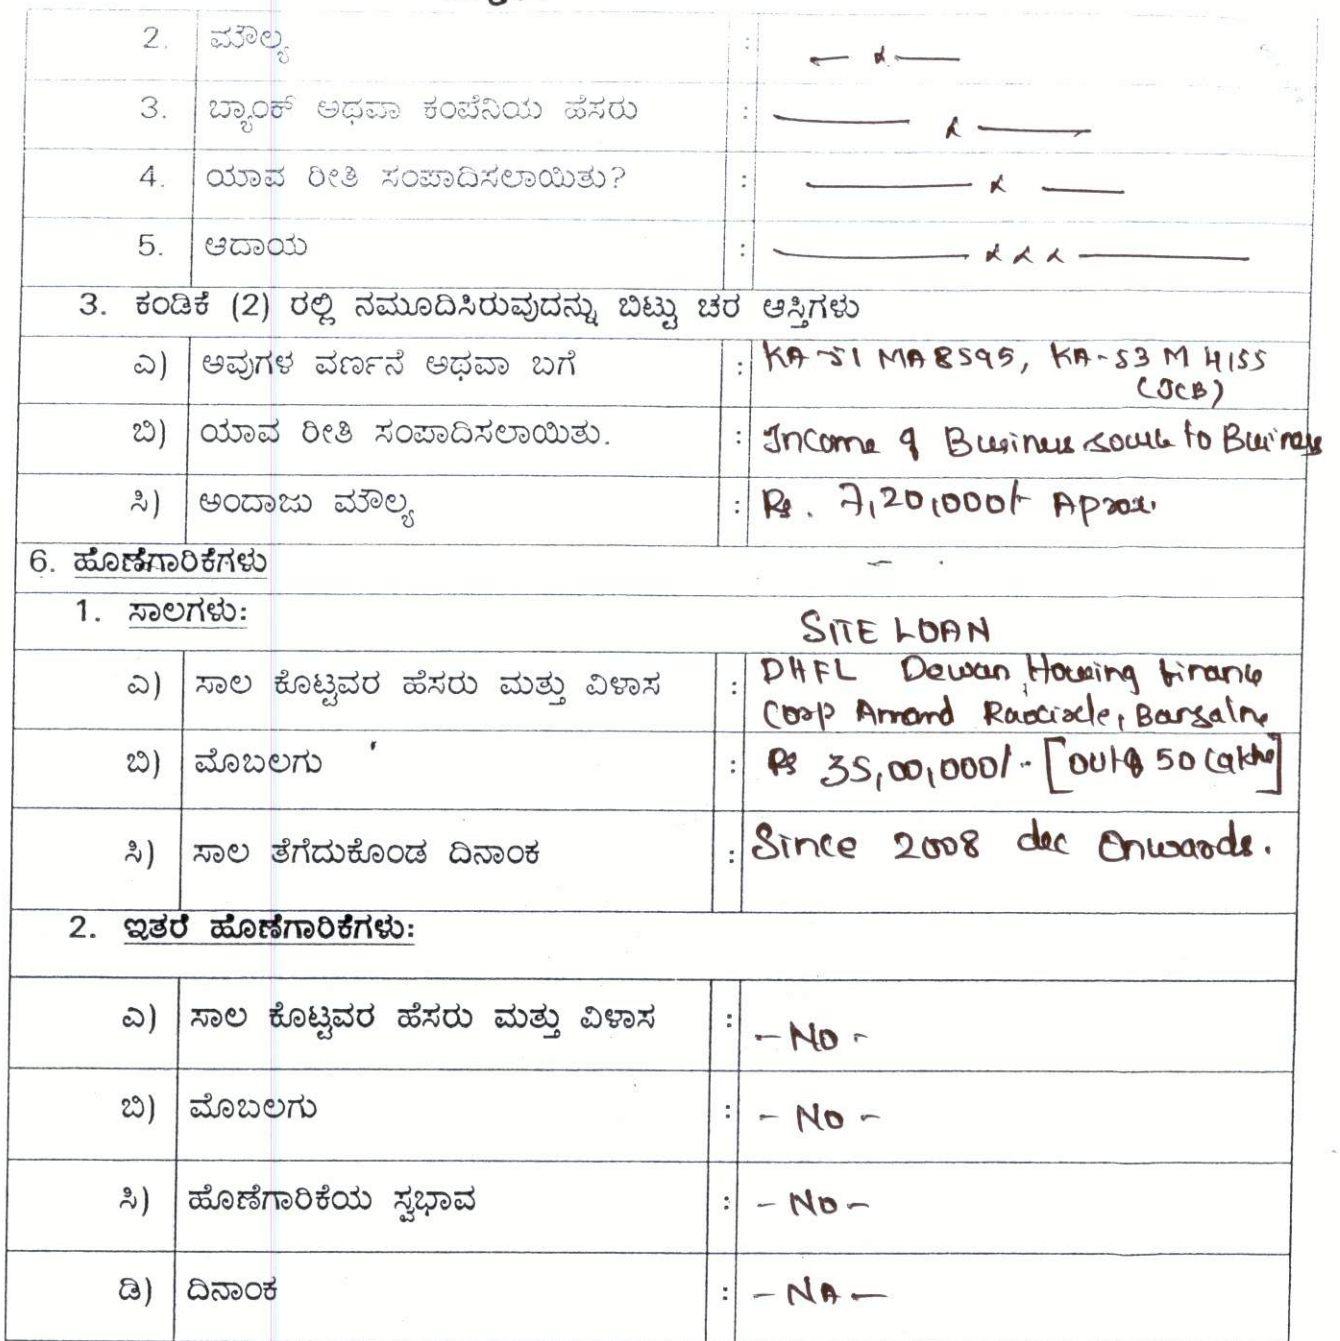 2. ಮೌಲ್ಯ :
3. ಬ್ಯಾಂಕ್ ಅಥವಾ ಕಂಪೆನಿಯ ಹೆಸರು :
4. ಯಾವ ರೀತಿ ಸಂಪಾದಿಸಲಾಯಿತು? :
5. ಆದಾಯ :
3. ಕಂಡಿಕೆ (2) ರಲ್ಲಿ ನಮೂದಿಸಿರುವುದನ್ನು ಬಿಟ್ಟು ಚರ ಆಸ್ತಿಗಳು
ಎ) ಅವುಗಳ ವರ್ಣನೆ ಅಥವಾ ಬಗೆ : KA-51 MA 8595, KA-53 M 4155
(JCB)
ಬಿ) ಯಾವ ರೀತಿ ಸಂಪಾದಿಸಲಾಯಿತು. : Income Business to Business
ಸಿ) ಅಂದಾಜು ಮೌಲ್ಯ : Rs. 7,20,000/- Aprox.
6. ಹೊಣೆಗಾರಿಕೆಗಳು
1. ಸಾಲಗಳು:
SITE LOAN
ಎ) ಸಾಲ ಕೊಟ್ಟವರ ಹೆಸರು ಮತ್ತು ವಿಳಾಸ : DHFL Dewan Housing finance
Corp
ಬಿ) ಮೊಬಲಗು : Rs 35,00,000/- [out of 50 Lakhs]
ಸಿ) ಸಾಲ ತೆಗೆದುಕೊಂಡ ದಿನಾಂಕ : Since 2008 dec Onwards.
2. ಇತರೆ ಹೊಣೆಗಾರಿಕೆಗಳು:
ಎ) ಸಾಲ ಕೊಟ್ಟವರ ಹೆಸರು ಮತ್ತು ವಿಳಾಸ : - NO -
ಬಿ) ಮೊಬಲಗು : - NO -
ಸಿ) ಹೊಣೆಗಾರಿಕೆಯ ಸ್ವಭಾವ : - NO -
ಡಿ) ದಿನಾಂಕ : - NA -